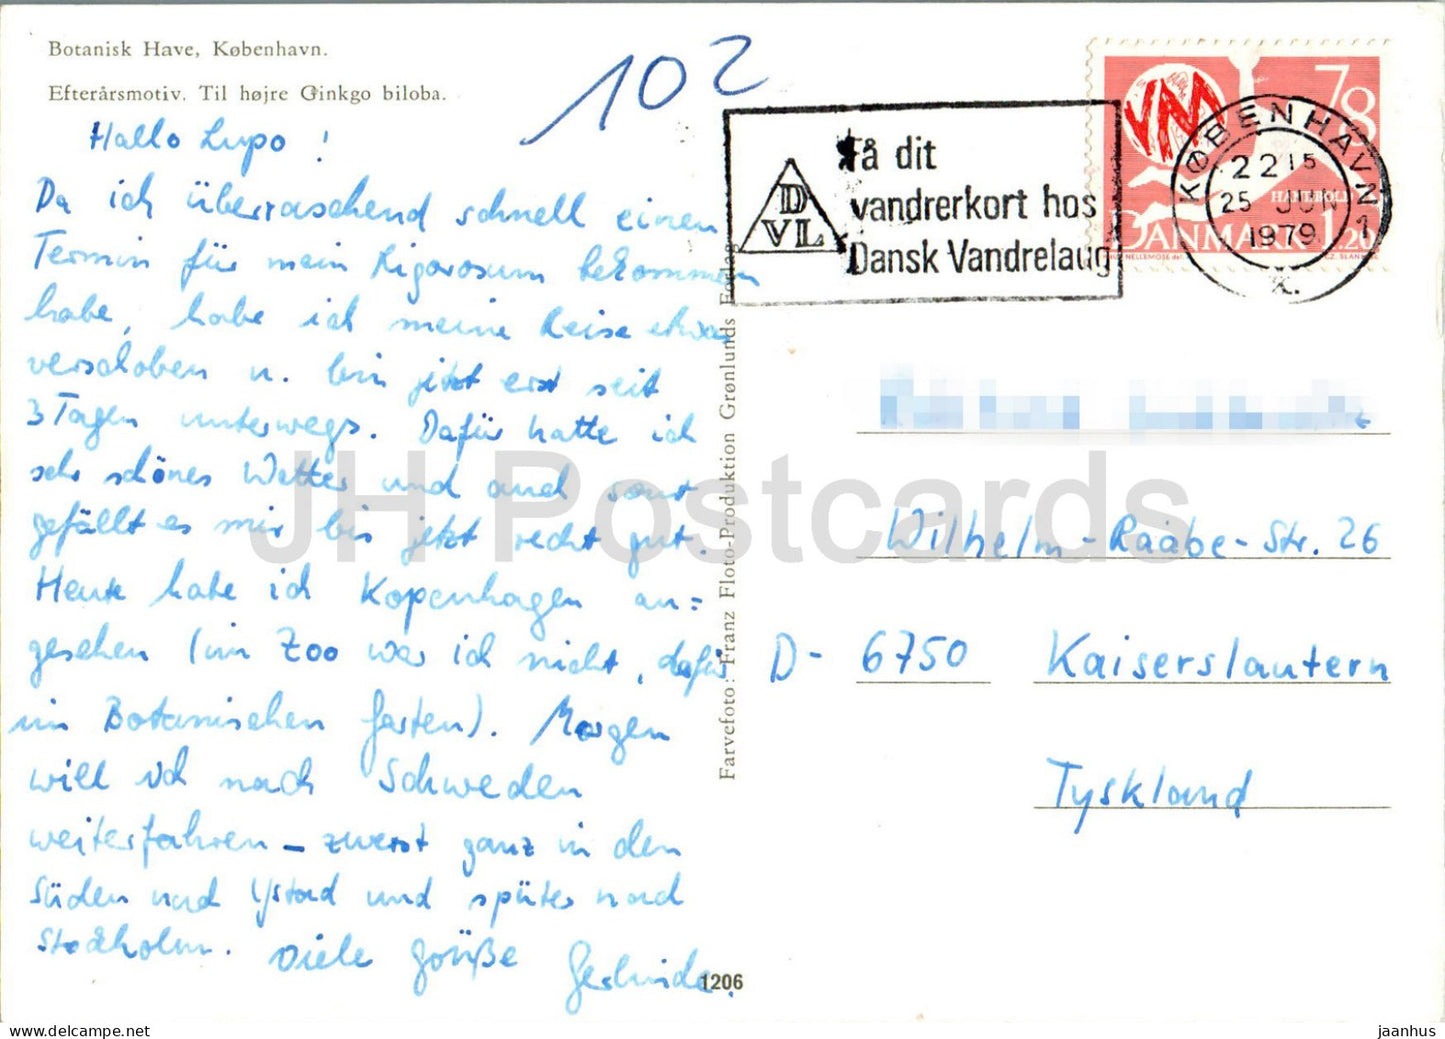 Botanisk Have, København.
Efterårsmotiv. Til højre Ginkgo biloba.
102
Hallo Lupo!
Da ich überraschend schnell einen
Termin für mein Rigorosum bekommen
habe, habe ich meine Reise etwas
verschoben u. bin jetzt erst seit
3 Tagen unterwegs. Dafür hatte ich
sehr schönes Wetter und auch sonst
gefällt es mir bis jetzt recht gut.
Heute habe ich Kopenhagen an=
gesehen (im Zoo war ich nicht, dafür
im Botanischen Garten). Morgen
will ich nach Schweden
weiterfahren – zuerst ganz in den
Süden nach Ystad und später nach
Stockholm. Viele Grüße Gerlinde.
Farvefoto: Franz Floto-Produktion Grønlunds Forlag
1206
DVL
Få dit
vandrerkort hos
Dansk Vandrelaug
KØBENHAVN
2215
25 JUN
1979 1
K.
VM
78
HÅNDBOLD
DANMARK 1.20
Wilhelm-Raabe-Str. 26
D- 6750 Kaiserslautern
Tyskland
JH Postcards
www.delcampe.net
jaanhus